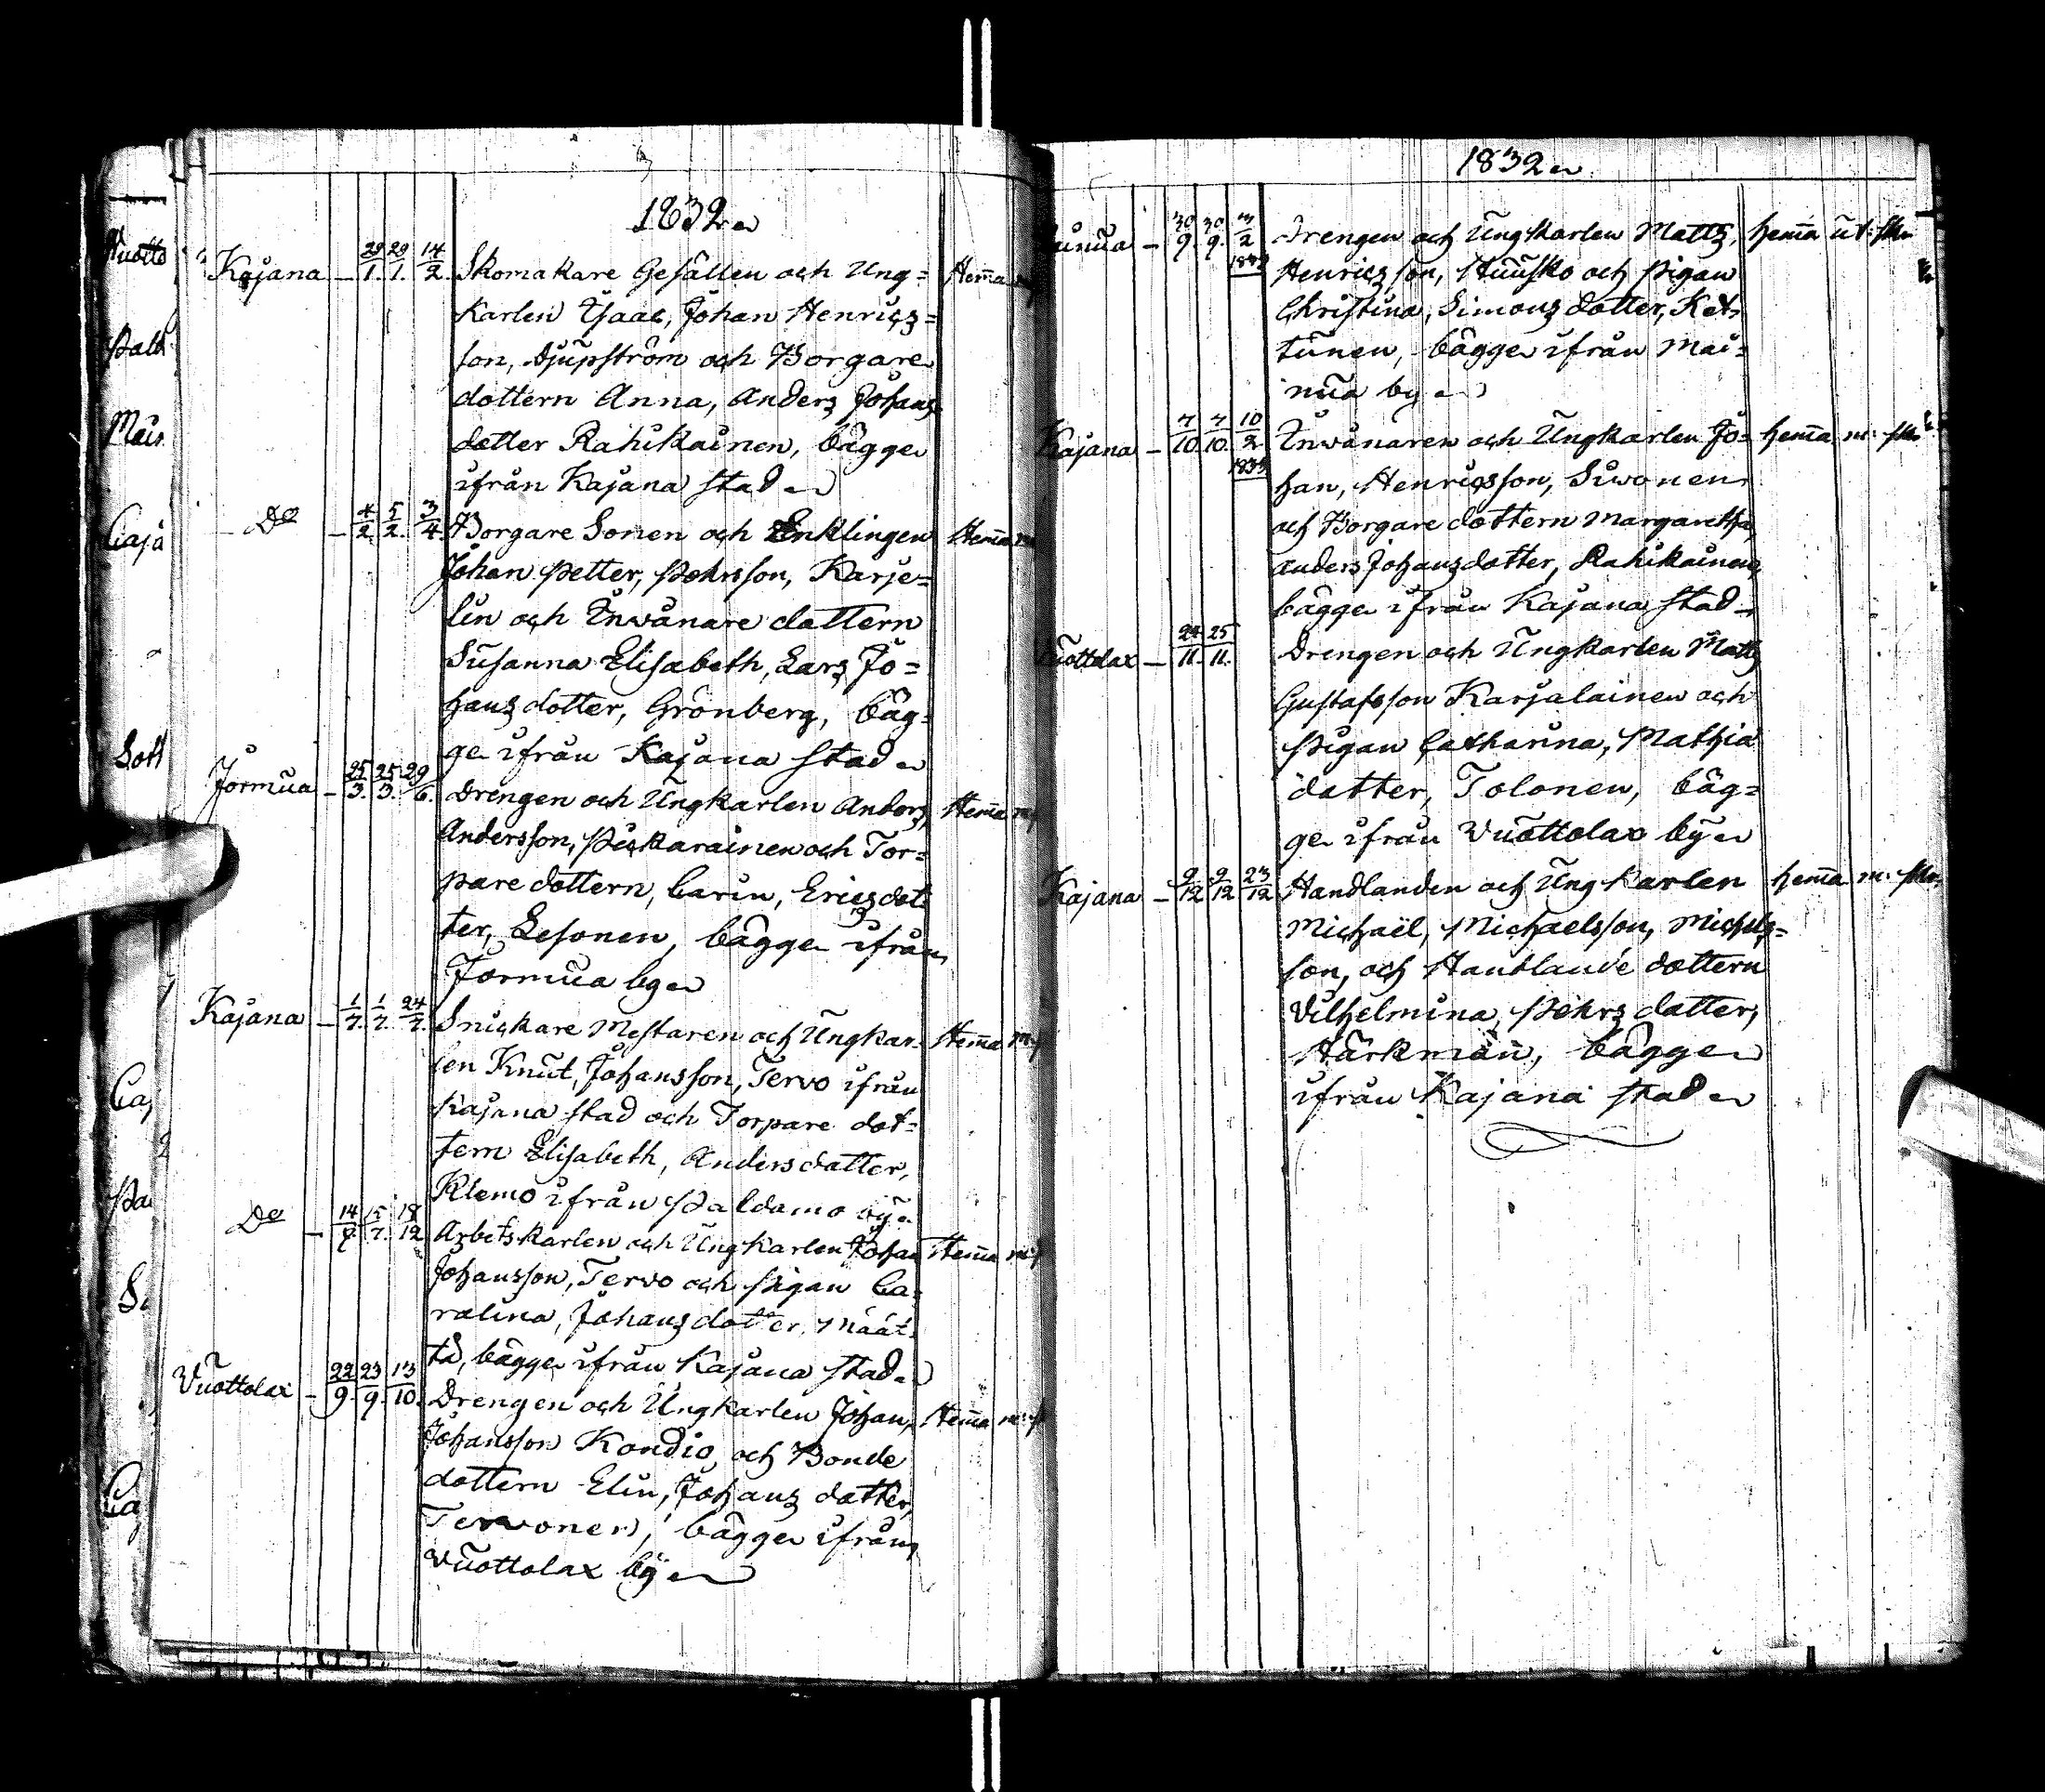 1832
Kajana — 29/1. 29/1. 14/2. Skomakare Gesällen och Ung= Hem̄a
karlen Isaac, Johan Henrics=
son, Djupström och Borgare
dottern Anna, Anders Johans
dotter Rahikainen, bägge
ifrån Kajana stad
Do — 4/2. 5/2. 3/4. Borgare Sonen och Enklingen Hem̄a m
Johan Petter, Pehrsson, Karje=
lin och Inwånare dottern
Susanna Elisabeth, Lars Jo=
hans dotter, Grönberg, bäg=
ge ifrån Kajana stad
Jormua — 25/3. 25/3. 29/6. Drengen och Ungkarlen Anders, Hem̄a m
Andersson, Pickarainen och Tor=
pare dottern, Carin, Ericsdot
ter, Lesonen, bägge ifrån
Jormua by
Kajana — 1/7. 1/7. 24/7. Snickare Mestaren och Ungkar- Hem̄a m
len Knut, Johansson, Tervo ifrån
Kajana stad och Torpare dot=
tern Elisabeth, Andersdotter,
Klemo ifrån Paldamo by
Do — 14/7. 15/7. 18/12 Arbetskarlen och Ungkarlen Johan Hem̄a m:
Johansson, Tervo och Pigan Ca=
rolina, Johans dotter, Määt=
tä, bägge ifrån Kajana stad
Vuottolax — 22/9. 23/9. 13/10. Drengen och Ungkarlen Johan, Hem̄a m:
Johansson Kondio, och Bonde
dottern Elin, Johans dotter,
Tervonen, bägge ifrån
Vuottolax by
Vuotto
Pald
Mais
Caja
Sott
Caj
Pa
S
Caj
1832
30/9. 30/9. 3/2 1833 Drengen och Ungkarlen Matts, hem̄a ut: skr
Henricsson, Huusko och Pigan
Christina, Simons dotter, Ket=
tunen, bägge ifrån Mai=
nua by
Kajana — 7/10. 7/10. 10/2 1833 Inwånaren och Ungkarlen Jo= hem̄a m: skr
han, Henricsson, Siwonen
och Borgare dottern Margaretha,
Anders Johans dotter, Rahikainen,
bägge ifrån Kajana stad
Vuottolax — 24/11. 25/11. Drengen och Ungkarlen Matts
Gustafsson Karjalainen och
Pigan Catharina, Mathia
dotter, Tolonen, bäg=
ge ifrån Vuottolax by
Kajana — 9/12 9/12 23/12 Handlanden och Ungkarlen hem̄a m: skr
Michaël, Michaelsson, Michels=
son, och Handlande dottern
Vilhelmina Pehrs dotter,
Härkman, bägge
ifrån Kajana stad